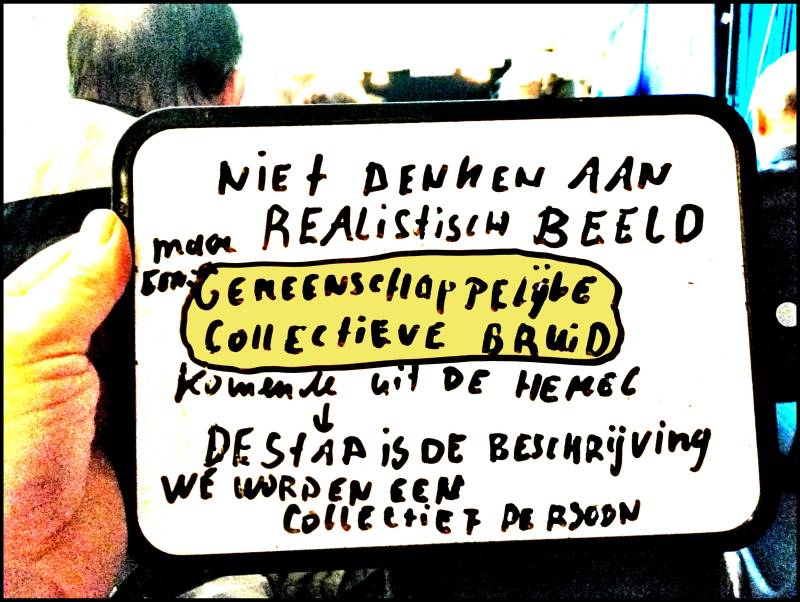 NIET DENKEN AAN
REALISTISCH BEELD
maar
EEN GEMEENSCHAPPELIJKE
COLLECTIEVE BRUID
Komende uit DE HEMEL
↓
DE STAD iS DE BESCHRIJVING
WE WORDEN EEN
COLLECTIEF PERSOON